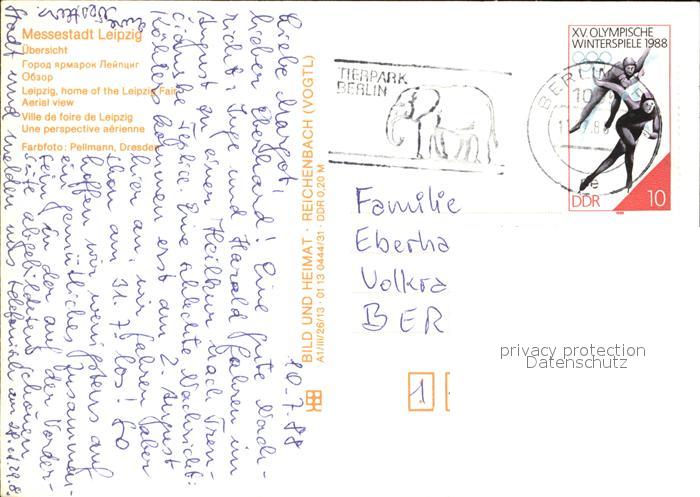 Messestadt Leipzig
Übersicht
Город ярмарок Лейпциг
Обзор
Leipzig, home of the Leipzig Fair
Aerial view
Ville de foire de Leipzig
Une perspective aérienne
Farbfoto: Pellmann, Dresden
BILD UND HEIMAT · REICHENBACH (VOGTL)
A1/III/26/13 · 01 13 0444/31 · DDR 0,20 M
10.7.88
Liebe Margot,
lieber Eberhard! Eine gute Nach-
richt: Inge und Harald fahren im
August zu einer Heilkur nach Tren-
cianske Teplice. Eine schlechte Nachricht:
Köhlers kommen erst am 2. August
hier an, wir fahren aber
schon am 31.7. los! So
hoffen wir wenigstens auf
ein gemütliches Zusammen-
sein in der auf der Vorder-
seite abgebildeten schönen
Stadt und melden uns telefonisch
TIERPARK
BERLIN
BERLIN
XV. OLYMPISCHE
WINTERSPIELE 1988
DDR 10
Familie
Eberha
Volkra
BER
1
privacy protection
Datenschutz